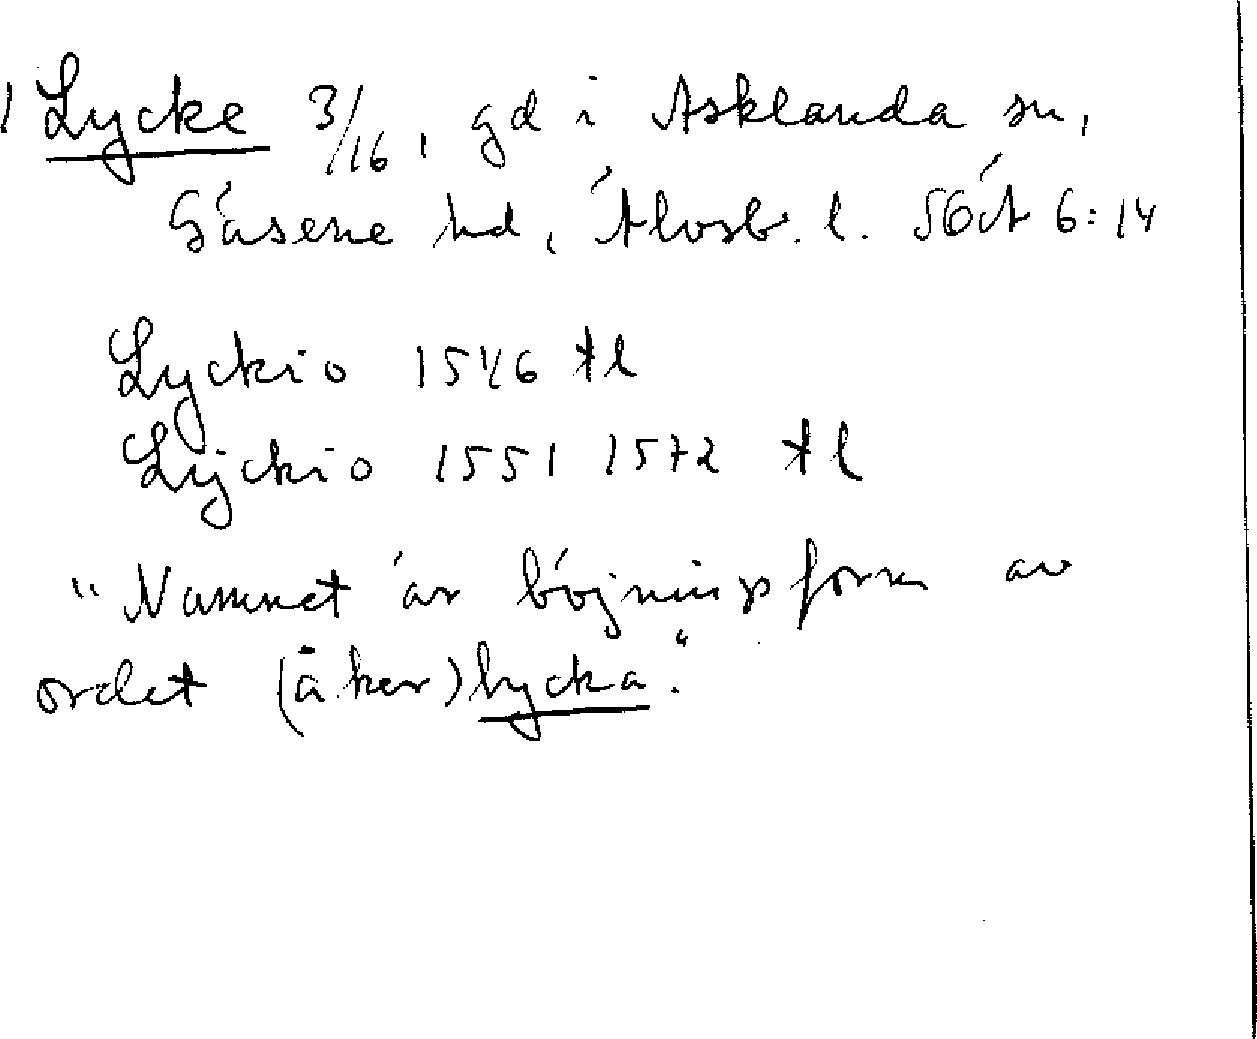 1 Lycke 3/16, gd i Asklanda sn,
Gäsene hd, Älvsb. l. SOÄ 6:14
Lyckio 1546 Äl
Lyckio 1551 1572 Äl
"Namnet är böjningsform av
ordet (åker)lycka."